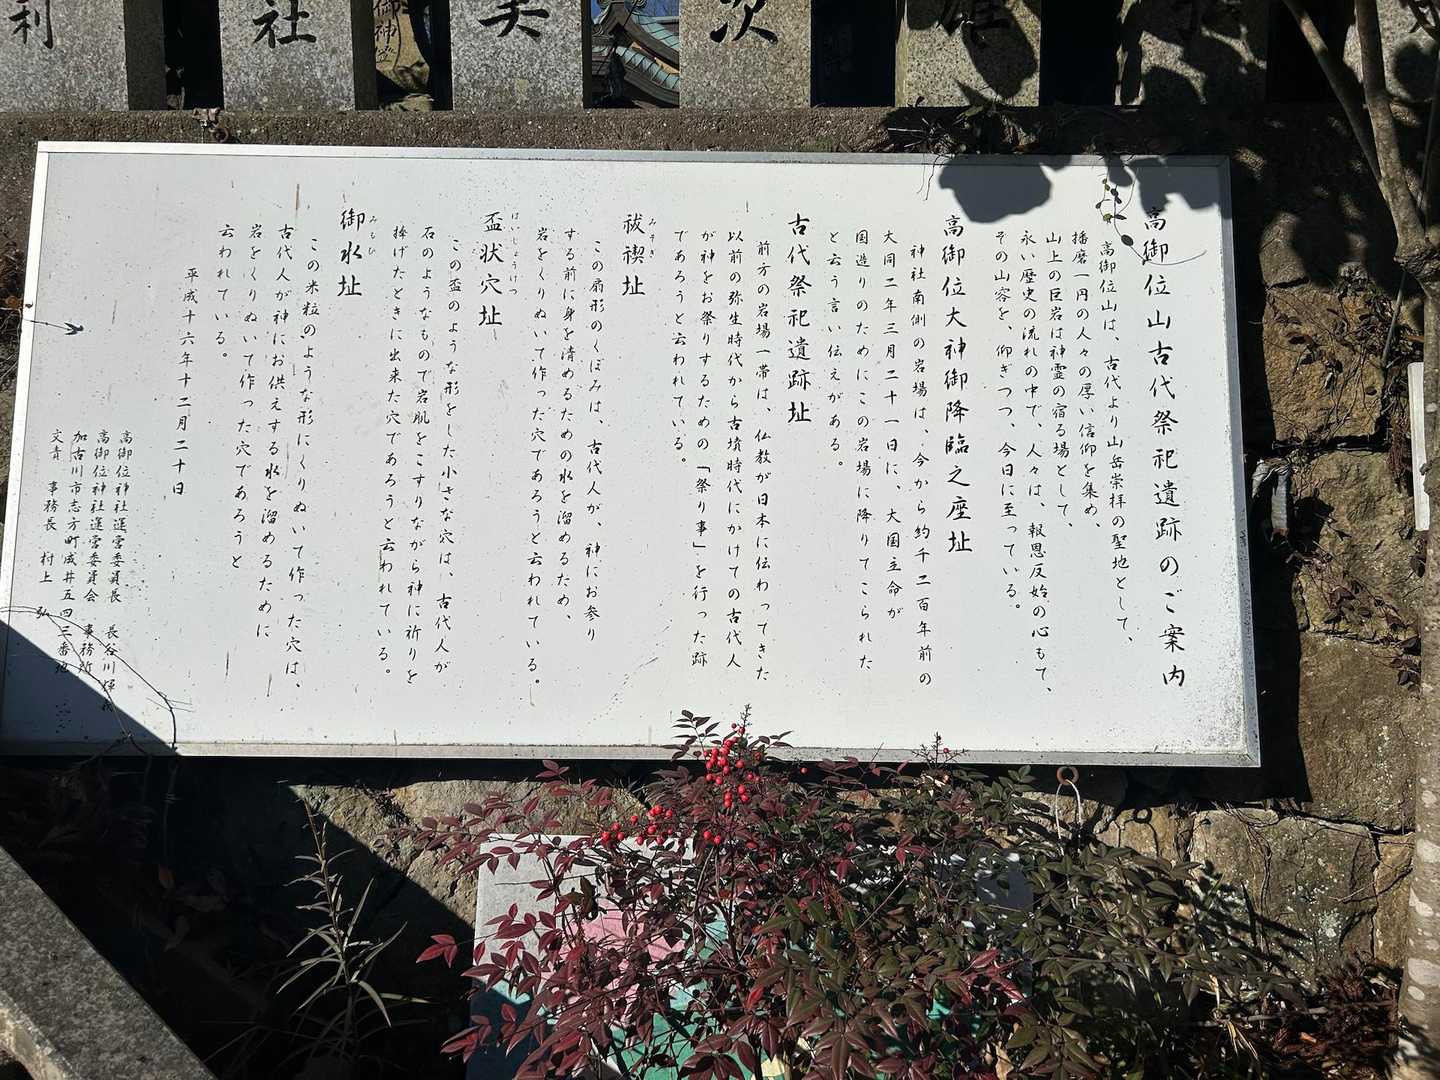 利
社
御神
美
次
雄
高御位山古代祭祀遺跡のご案内
高御位山は、古代より山岳崇拝の聖地として、
播磨一円の人々の厚い信仰を集め、
山上の巨岩は神霊の宿る場として、
永い歴史の流れの中で、人々は、報恩反始の心もて、
その山容を、仰ぎつつ、今日に至っている。
高御位大神御降臨之座址
神社南側の岩場は、今から約千二百年前の
大同二年三月二十一日に、大国主命が
国造りのためにこの岩場に降りてこられた
と云う言い伝えがある。
古代祭祀遺跡址
前方の岩場一帯は、仏教が日本に伝わってきた
以前の弥生時代から古墳時代にかけての古代人
が神をお祭りするための「祭り事」を行った跡
であろうと云われている。
祓禊址
みそぎ
この扇形のくぼみは、古代人が、神にお参り
する前に身を清めるための水を溜めるため、
岩をくりぬいて作った穴であろうと云われている。
盃状穴址
はいじょうけつ
この盃のような形をした小さな穴は、古代人が
石のようなもので岩肌をこすりながら神に祈りを
捧げたときに出来た穴であろうと云われている。
御水址
みもひ
この米粒のような形にくりぬいて作った穴は、
古代人が神にお供えする水を溜めるために
岩をくりぬいて作った穴であろうと
云われている。
平成十六年十二月二十日
高御位神社運営委員長 長谷川輝
高御位神社運営委員会 事務所
加古川市志方町成井五四三番地
文責 事務長 村上 弘